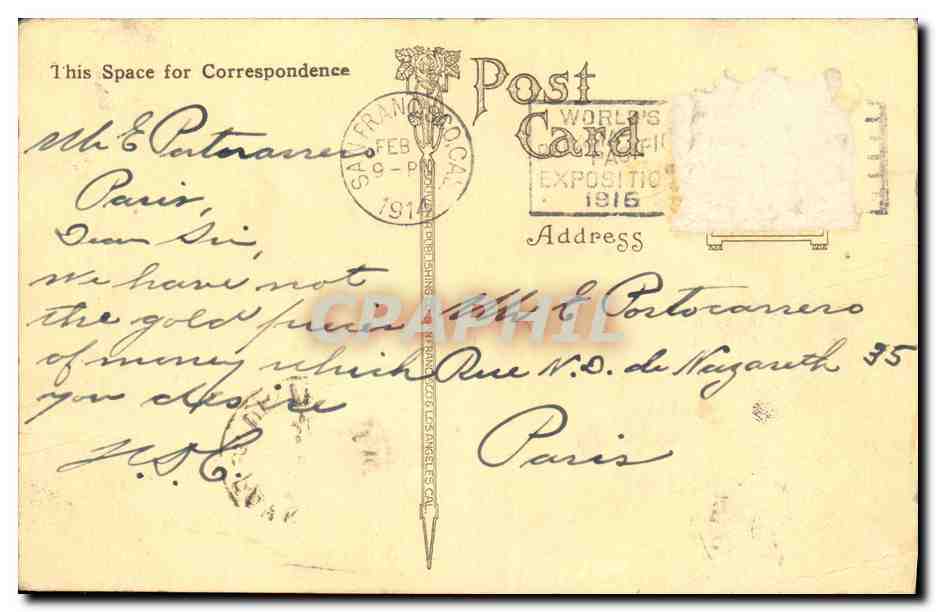 This Space for Correspondence
Post
Card
SAN FRANCISCO, CAL.
FEB
9-PM
1914
WORLD'S
EXPOSITIO
1915
Address
Mr E Portocarrero
Paris,
Dear Sir,
We have not
the gold pieces
of money which
you desire
Mr E Portocarrero
Rue N.D. de Nazareth 35
Paris
PUBLISHING
SAN FRANCISCO & LOS ANGELES CAL.
CPARHIL